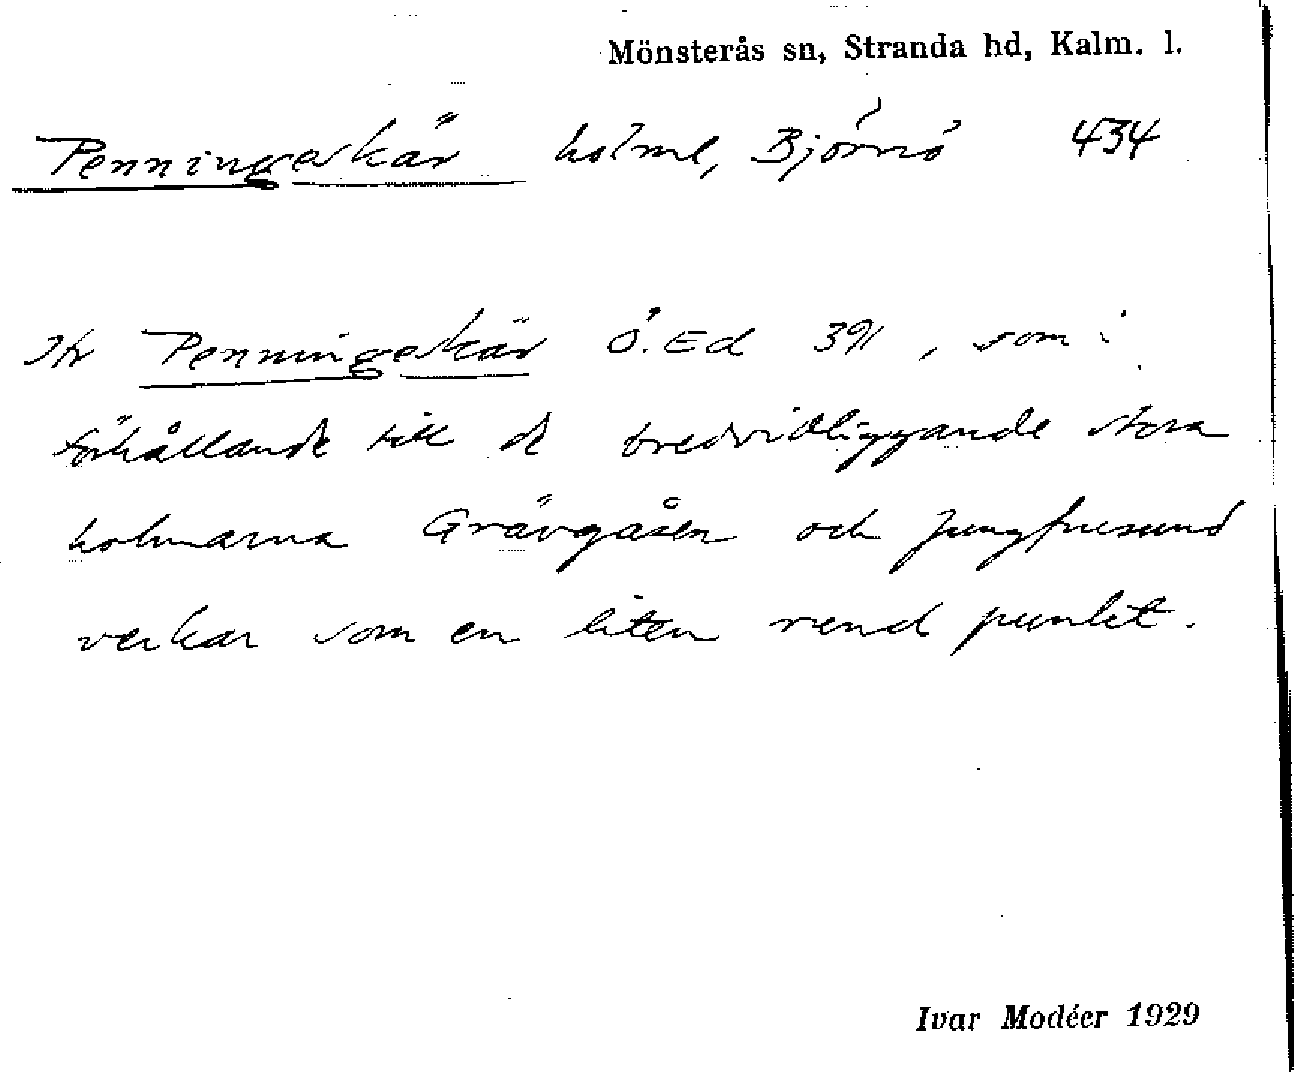 Mönsterås sn, Stranda hd, Kalm. l.
Penningeskär holme, Björnö 434
Jfr Penningeskär Ö. Ed 391, som i
förhållande till de bredvidliggande stora
holmarna Grävgåsen och Jungfrusund
verkar som en liten rund punkt.
Ivar Modéer 1929